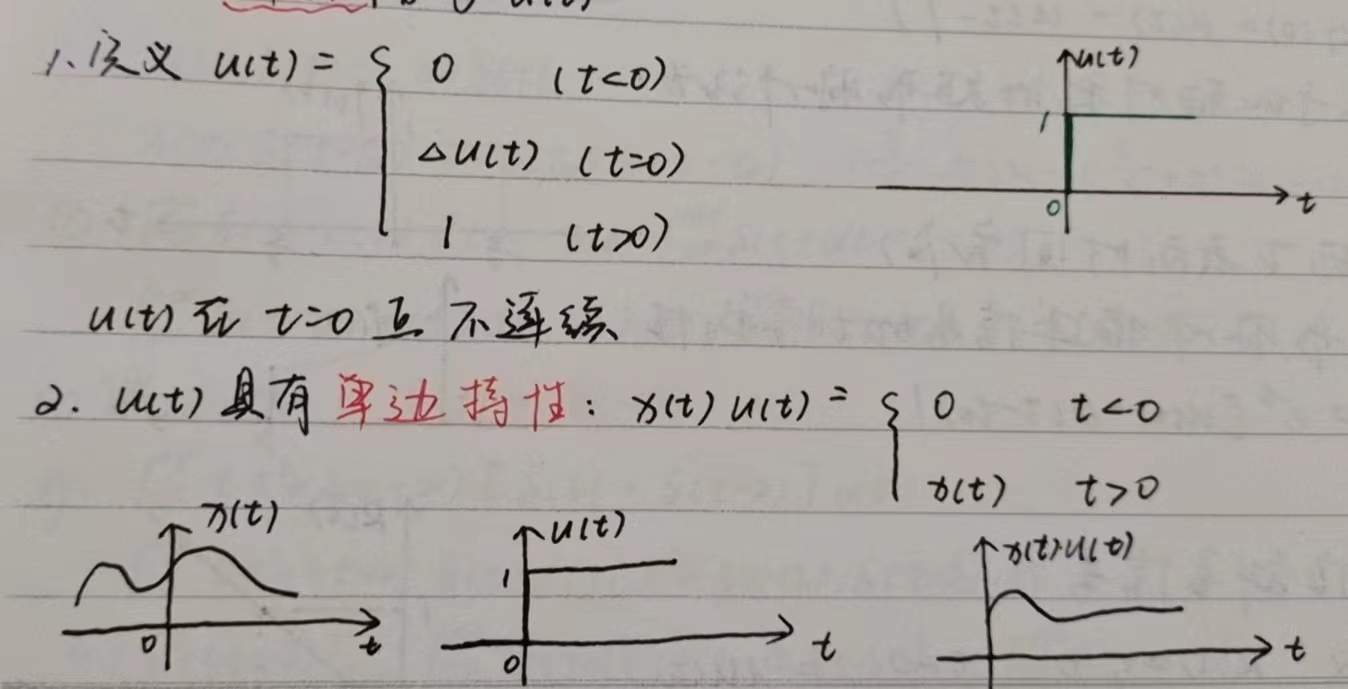 1、定义 u(t) = { 0 (t<0)
△u(t) (t=0)
1 (t>0)
u(t)
1
0
t
u(t) 在 t=0 点 不连续
2. u(t) 具有 单边特性: x(t) u(t) = { 0 t<0
x(t) t>0
x(t)
0
t
u(t)
1
0
t
x(t)u(t)
t